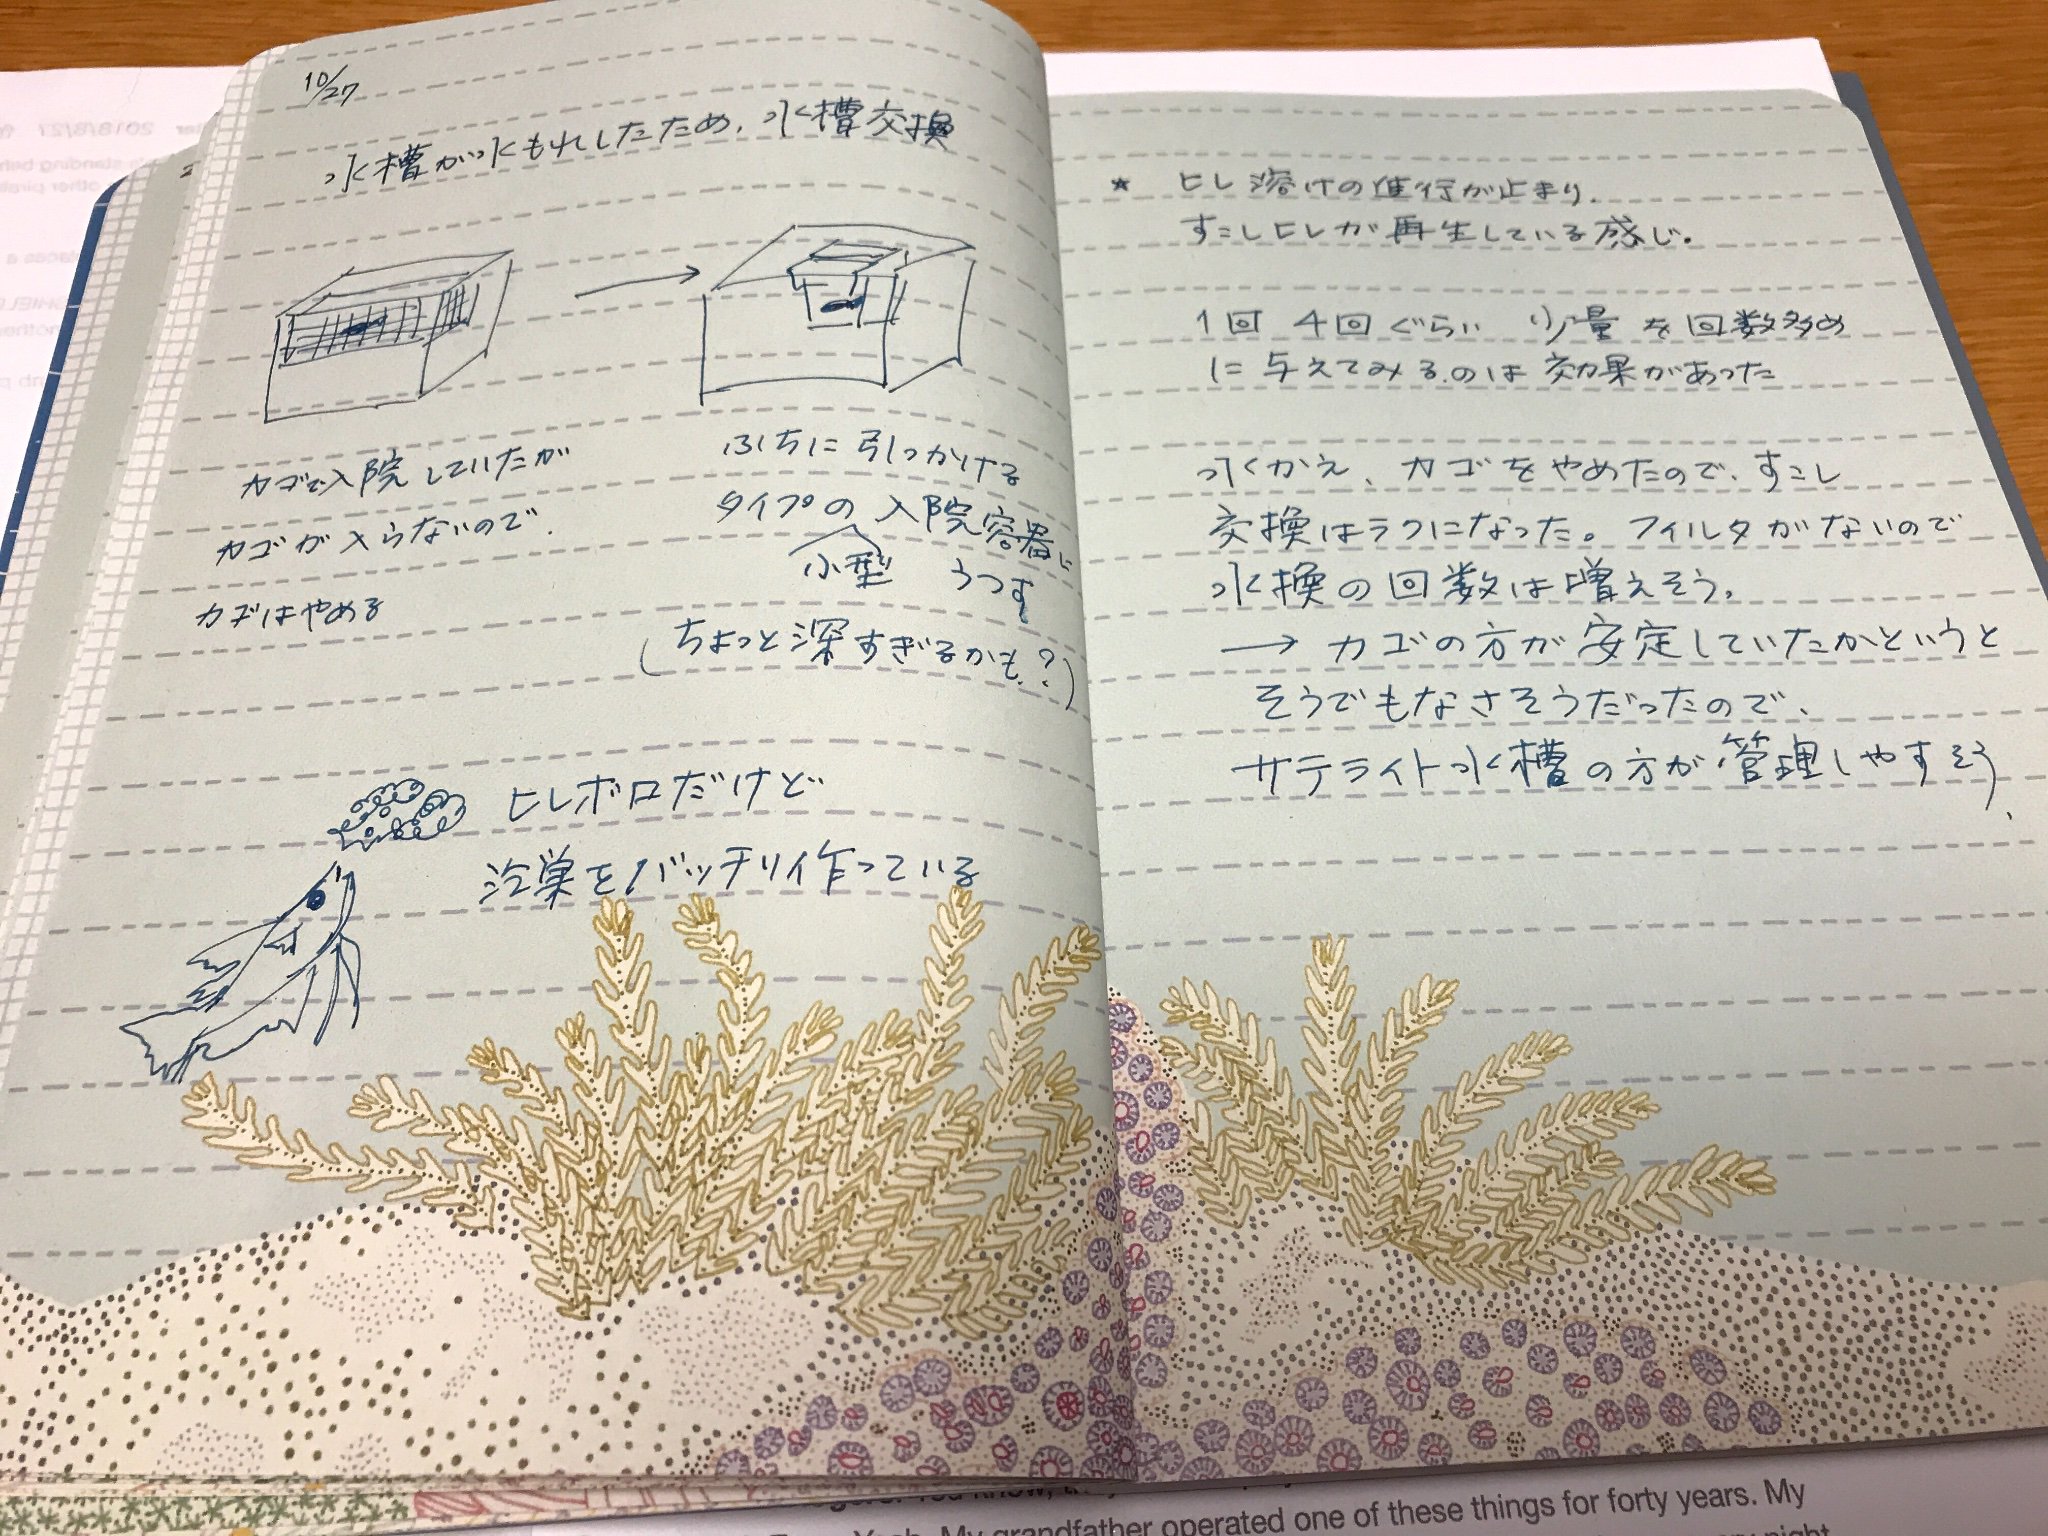 10/27
水槽が水もれしたため、水槽交換
カゴで入院していたが
カゴが入らないので、
カゴはやめる
ふちに引っかける
タイプの入院容器に
小型 うつす
(ちょっと深すぎるかも?)
ヒレボロだけど
泡巣をバッチリ作っている
★ ヒレ溶けの進行が止まり、
すこしヒレが再生している感じ。
1回 4回ぐらい 少量を回数多め
に与えてみるのは効果があった
水かえ、カゴをやめたので、すこし
交換はラクになった。フィルタがないので
水換の回数は増えそう。
→ カゴの方が安定していたかというと
そうでもなさそうだったので、
サテライト水槽の方が管理しやすそう、
2018/8/21
standing
other
one of these things for forty years. My
My grandfather operated